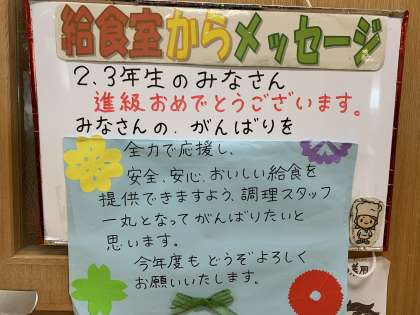 給食室からメッセージ
2.3年生のみなさん
進級おめでとうございます。
みなさんの、がんばりを
全力で応援し、
安全、安心、おいしい給食を
提供できますよう、調理スタッフ
一丸となってがんばりたいと
思います。
今年度もどうぞよろしく
お願いいたします。